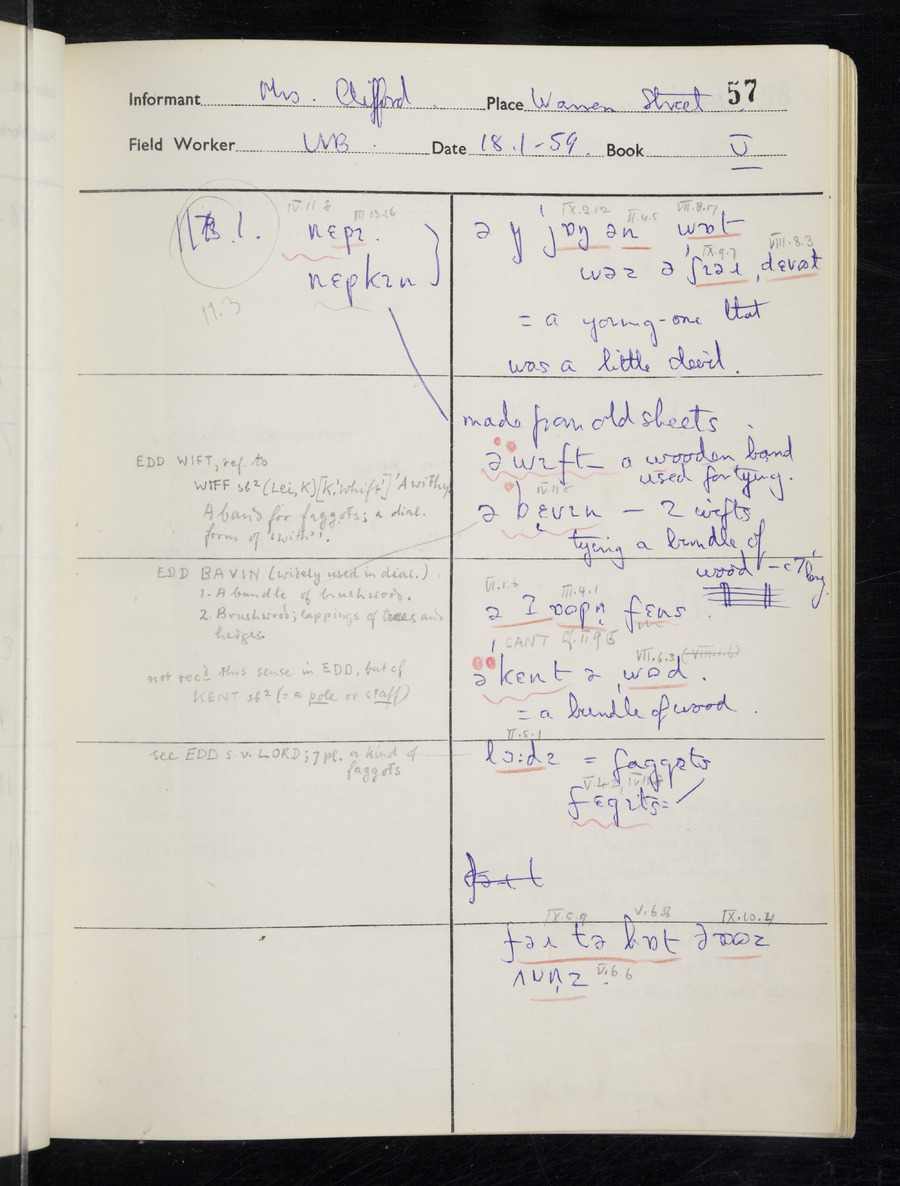 Informant Mrs. Clifford Place Warren Street 57
Field Worker WB Date 18.1-59 Book V
1. IV.11.8 III.13.16
nɛpɪ.
nɛpkɪn }
11.3
IX.2.12 II.4.5 VII.8.17
wɒt
IX.9.7 VIII.8.3
wəz ə
= a young-one that
was a little devil.
made from old sheets.
ə wɪft a wooden band
used for tying.
IV.11.8
ə bɛvɪn – 2 wifts
tying a bundle of
wood
EDD WIFT, ref. to
WIFF sb² (Lei, K) [K. 'whift'] 'A withy
A band for faggots; a dial.
form of 'with'.
EDD BAVIN (widely used in dial.)
1. A bundle of brushwood.
2. Brushwood; lappings of trees and
hedges.
VI.1.6 III.4.1
fɛns
CANT cf. II 9 15
not recd this sense in EDD, but cf
KENT sb² (= a pole or staff)
VII.6.3 (VIII.1.6)
ə kɛnt ə wʊd.
= a bundle of wood.
see EDD s.v. LORD; 7 pl. a kind of
faggots
II.5.1
lɔ:dz = faggots
fɛgɪts =
IX.5.9 V.6.8 IX.10.4
tə hɒt
V.6.6